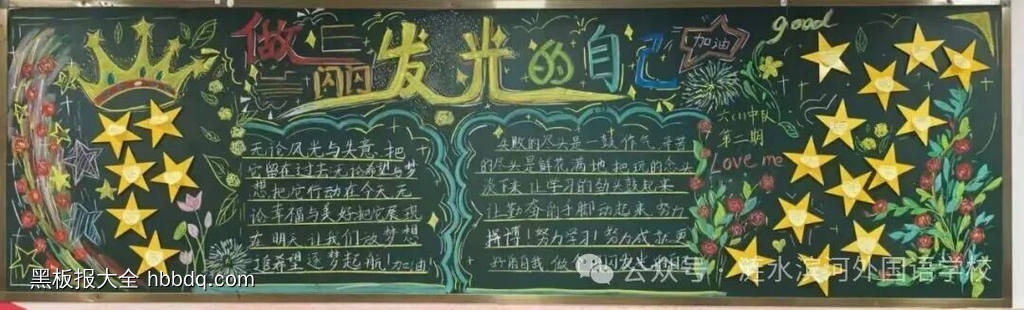 做
闪闪发光的自己
加油
good
六(1)中队
第二期
Love me
无论风光与失意,把
它留在过去无论希望与梦
想把它行动在今天无
论幸福与美好把它展现
在明天,让我们放梦想
追希望逐梦起航!加油!
失败的尽头是一鼓作气,辛苦
的尽头是鲜花满地,把玩的念头
淡下来,让学习的劲头鼓起来
让勤奋的手脚动起来,努力
拼搏!努力学习!努力成就更
好的自我,做
黑板报大全 hbbdq.com
公众号·涟水滨河外国语学校